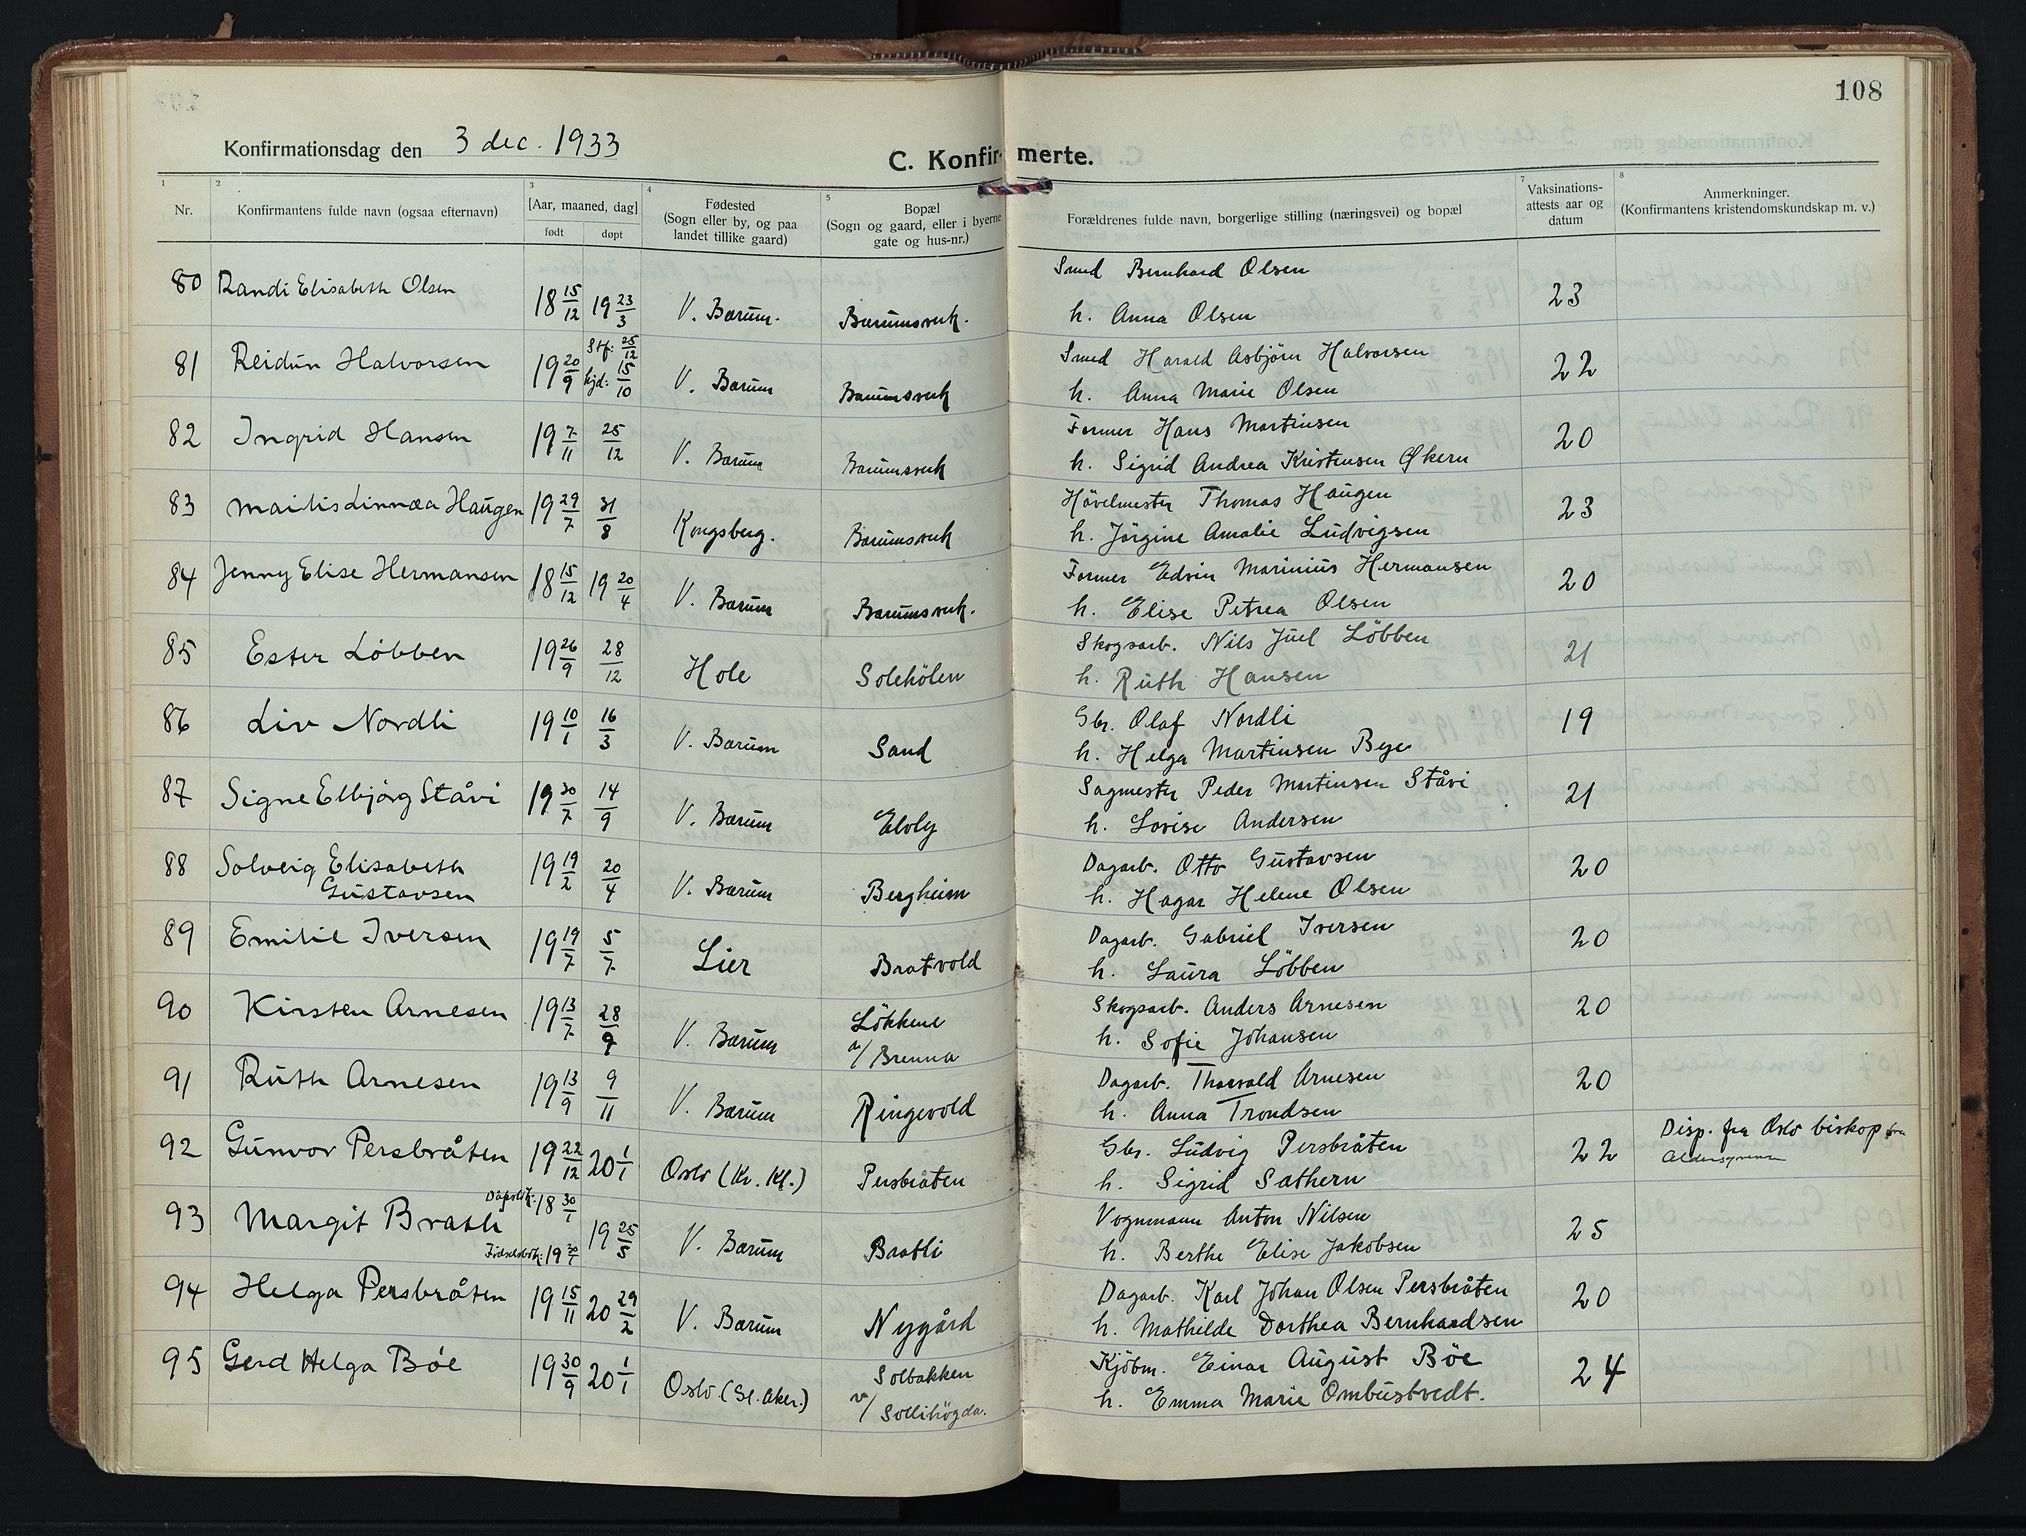 108
Konfirmationsdag den 3 dec. 1933
C. Konfirmerte.
1 2 3 4 5 7 8
Nr.
Konfirmantens fulde navn (ogsaa efternavn)
[Aar, maaned, dag]
født døpt
Fødested
(Sogn eller by, og paa
landet tillike gaard)
Bopæl
(Sogn og gaard, eller i byerne
gate og hus-nr.)
Forældrenes fulde navn, borgerlige stilling (næringsvei) og bopæl
Vaksinations-
attests aar og
datum
Anmerkninger.
(Konfirmantens kristendomskundskap m. v.)
80 Randi Elisabeth Olsen 18 15/12 19 23/3 V. Bærum. Bærumsverk. Smed Bernhard Olsen 23
h. Anna Olsen
81 Reidun Halvorsen 19 20/9 Stf: 25/12 V. Bærum Bærumsverk Smed Harald Asbjörn Halvorsen 22
hjd: 15/10 h. Anna Marie Olsen
82 Ingrid Hansen 19 7/11 25/12 V. Bærum Bærumsverk Former Hans Martinsen 20
h. Sigrid Andrea Kristensen Økern
83 Mailis Linnæa Haugen 19 29/7 31/8 Kongsberg. Bærumsverk Hövelmester Thomas Haugen 23
h. Jörgine Amalie Ludvigsen
84 Jenny Elise Hermansen 18 15/12 19 20/4 V. Bærum Bærumsverk. Former Edvin Marinius Hermansen 20
h. Elise Petrea Olsen
85 Ester Löbben 19 26/9 28/12 Hole Solehölen Skogsarb. Nils Juel Löbben 21
h. Ruth Hansen
86 Liv Nordli 19 10/1 16/3 V. Bærum Sand Gbr. Olaf Nordli 19
h. Helga Martinsen Bye
87 Signe Elbjörg Ståvi 19 30/7 14/9 V. Bærum Elvly Sagmester Peder Martinsen Ståvi 21
h. Lovise Andersen
88 Solveig Elisabeth 19 19/2 20/4 V. Bærum Bergheim Dagarb. Otto Gustavsen 20
Gustavsen h. Hagar Helene Olsen
89 Emilie Iversen 19 19/7 5/7 Lier Bratvold Dagarb. Gabriel Iversen 20
h. Laura Löbben
90 Kirsten Arnesen 19 13/7 28/9 V. Bærum Lökkene Skogsarb. Anders Arnesen 20
a/ Brenna h. Sofie Johansen
91 Ruth Arnesen 19 13/9 9/11 V. Bærum Ringevold Dagarb. Thorvald Arnesen 20
h. Anna Trondsen
92 Gunvor Persbråten 19 22/12 20 1/1 Oslo (Kv. Kl.) Persbråten Gbr. Ludvig Persbråten 22 Disp. fra Oslo biskop fra
h. Sigrid Sæthern
93 Margit Bratli Dåpsatt: 18 30/1 19 25/5 V. Bærum Bratli Vognmann Anton Nilsen 25
Fødselsbok: 19 30/1 h. Berthe Elise Jakobsen
94 Helga Persbråten 19 15/11 20 29/2 V. Bærum Nygård Dagarb. Karl Johan Olsen Persbråten 20
h. Mathilde Dorthea Bernhardsen
95 Gerd Helga Böe 19 30/9 20 1/1 Oslo (Gl. Aker.) Solbakken Kjöbm. Einar August Böe 24
v/ Sollihögda. h. Emma Marie Ombustvedt.